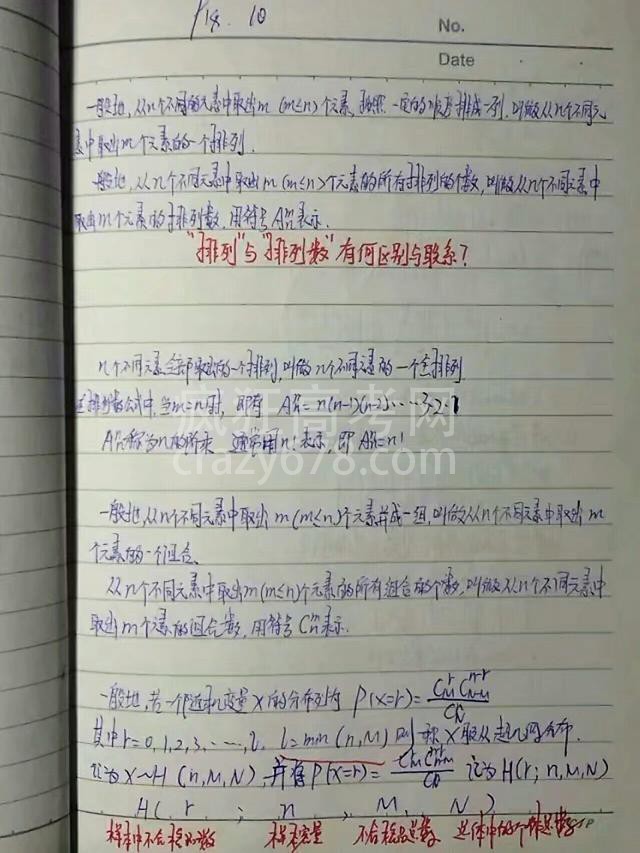 P18. 10
No.
Date
一般地,从n个不同的元素中取出m (m≤n)个元素,按照一定的顺序排成一列,叫做从n个不同元
素中取出m个元素的一个排列.
一般地,从n个不同元素中取出m(m≤n)个元素的所有排列的个数,叫做从n个不同元素中
取出m个元素的排列数,用符号Aₙᵐ表示.
"排列"与"排列数"有何区别与联系?
n个不同元素全部取出的一个排列,叫做n个不同元素的一个全排列.
在排列数公式中,当m=n时,即有 Aₙⁿ=n(n-1)(n-2)·····3·2·1
Aₙⁿ称为n的阶乘 通常用n!表示,即Aₙⁿ=n!
疯狂高考网
crazy678.com
一般地,从n个不同元素中取出m(m≤n)个元素并成一组,叫做从n个不同元素中取出m
个元素的一个组合.
从n个不同元素中取出m(m≤n)个元素的所有组合的个数,叫做从n个不同元素中
取出m个元素的组合数,用符号Cₙᵐ表示.
一般地,若一个随机变量X的分布列为 P(X=r)=
其中r=0,1,2,3,···,l, l=min(n,M) 则称X服从超几何分布.
记为X~H(n,M,N),并将P(X=r)= 记为H(r;n,M,N)
H( r ; n , M , N )
样本中不合格品数 样本容量 不合格品总数 总体中的个体总数